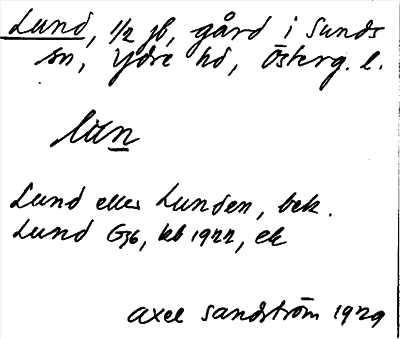 Lund, 1/2 jb, gård i Sunds
sn, Ydre hd, Österg. l.
Lund eller Lunden, bek.
Lund G56, kb 1922, ek
Axel Sandström 1929